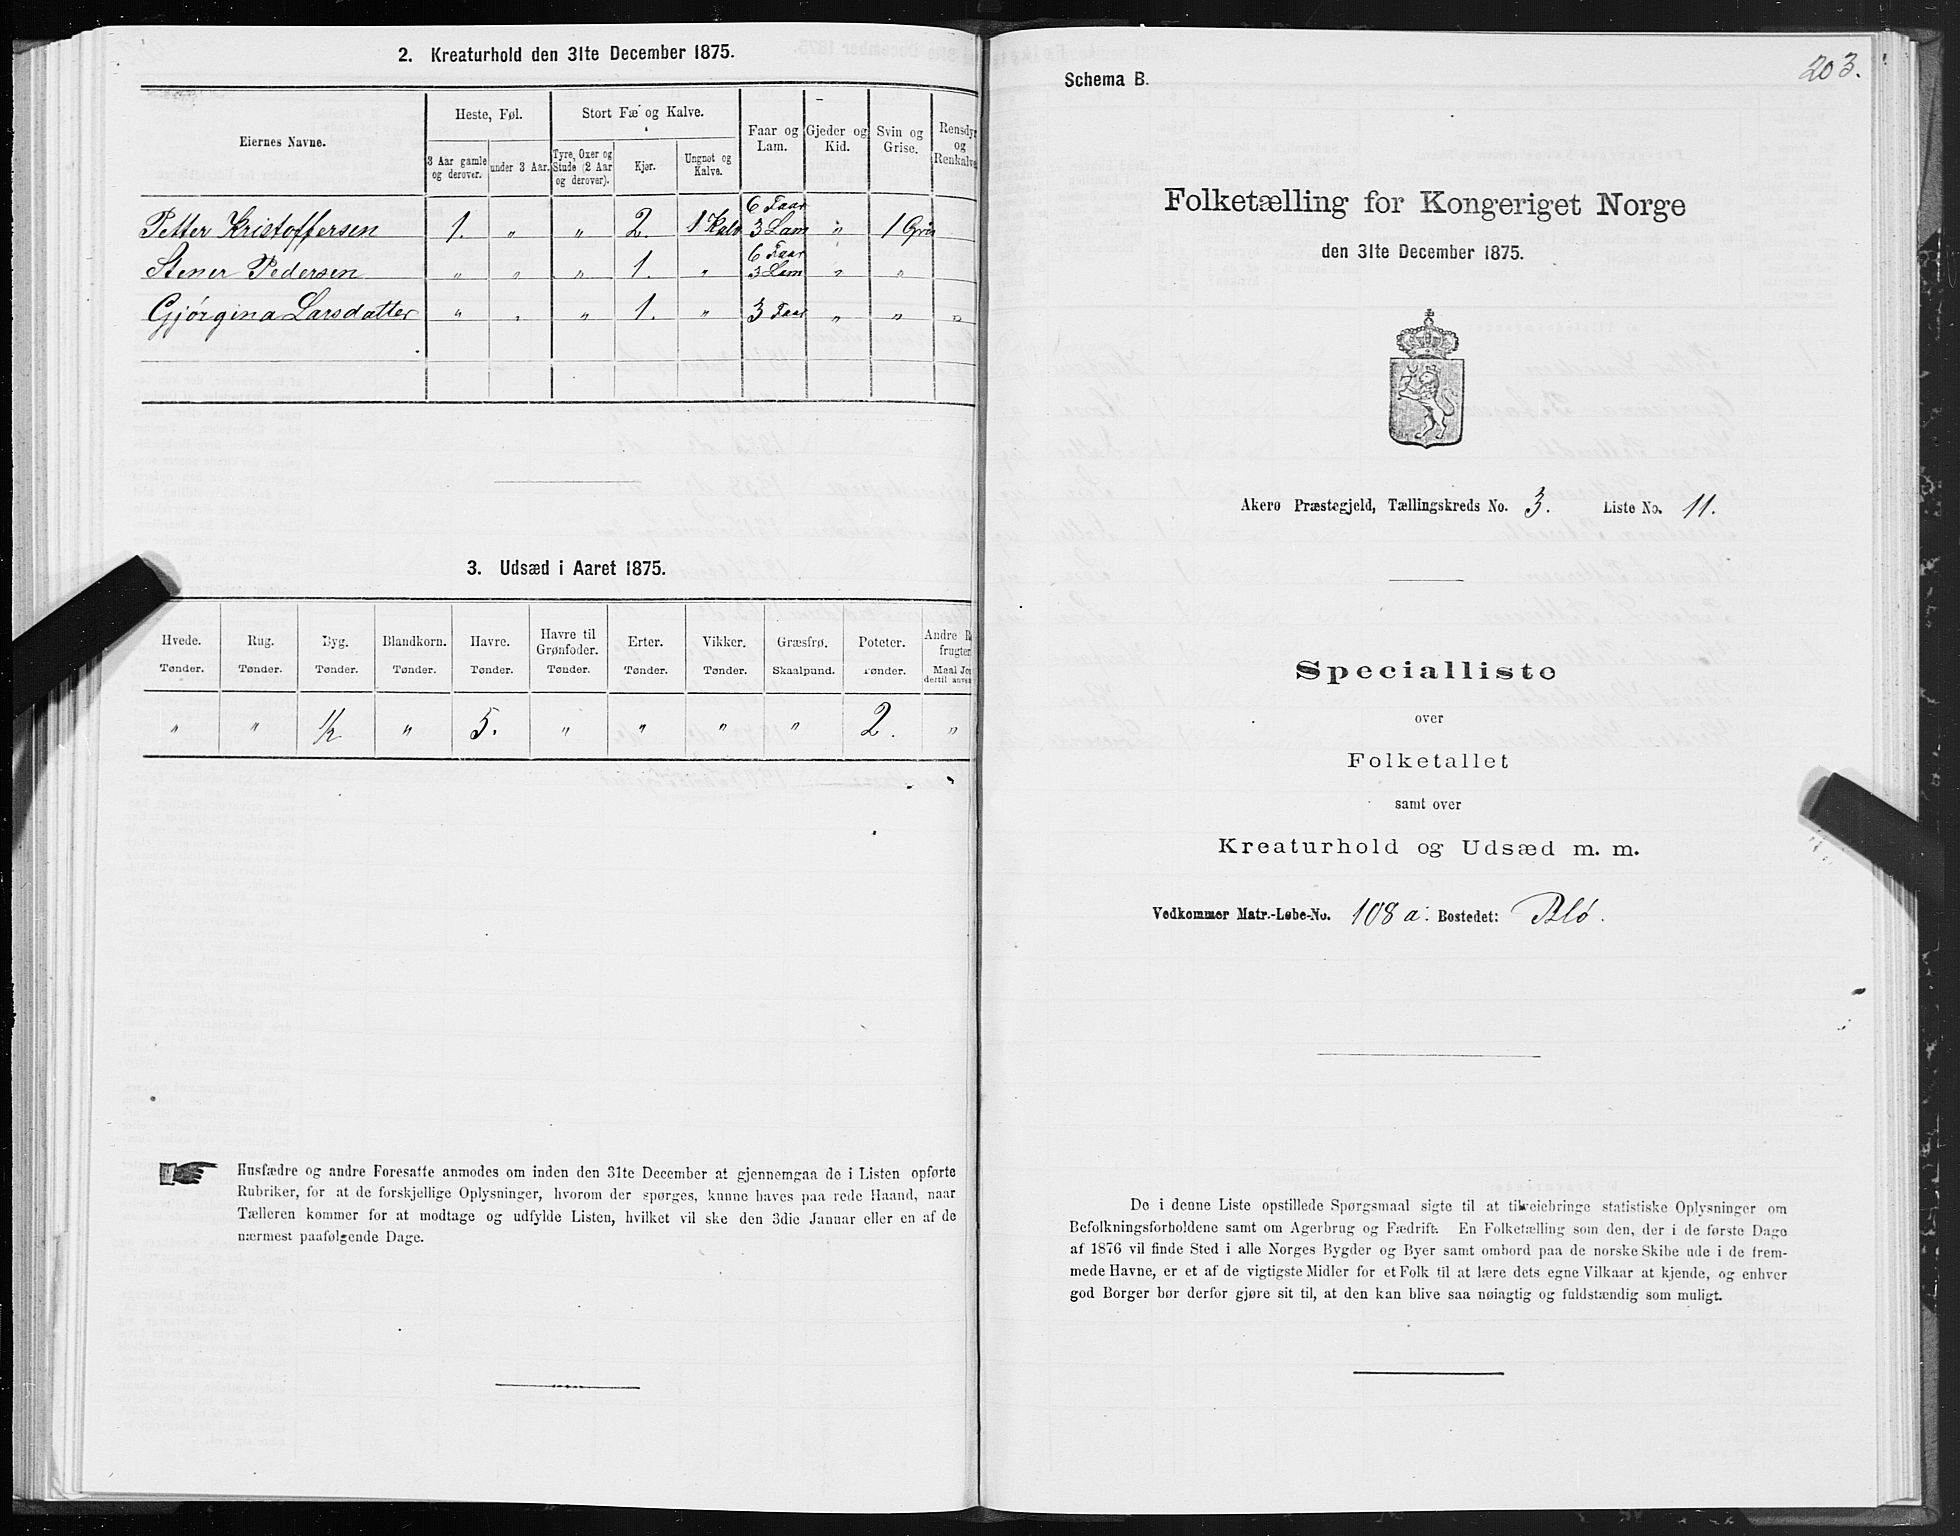 2. Kreaturhold den 31te December 1875.
Eiernes Navne.
Heste, Føl.
Stort Fæ og Kalve.
Faar og Lam.
Gjeder og Kid.
Svin og Grise.
Rensdyr og Renkalve
3 Aar gamle og derover.
under 3 Aar.
Tyre, Oxer og Stude (2 Aar og derover).
Kjør.
Ungnøt og Kalve.
Petter Kristoffersen 1. " " 2. 1 Kalv 6 Faar 3 Lam " 1 Gris
Stener Pedersen " " " 1. " 6 Faar 3 Lam " "
Gjørgina Larsdatter " " " 1. " 3 Faar " " "
3. Udsæd i Aaret 1875.
Hvede. Rug. Byg. Blandkorn. Havre. Havre til Grønfoder. Erter. Vikker. Græsfrø. Poteter. Andre R
frugter
Tønder. Tønder. Tønder. Tønder. Tønder. Tønder. Tønder. Tønder. Skaalpund. Tønder. Maal Jo
dertil anven
" " 1/2 " 5. " " " " 2. "
Husfædre og andre Foresatte anmodes om inden den 31te December at gjennemgaa de i Listen opførte
Rubriker, for at de forskjellige Oplysninger, hvorom der spørges, kunne haves paa rede Haand, naar
Tælleren kommer for at modtage og udfylde Listen, hvilket vil ske den 3die Januar eller en af de
nærmest paafølgende Dage.
203.
Schema B.
Folketælling for Kongeriget Norge
den 31te December 1875.
Akerø Præstegjeld, Tællingskreds No. 3. Liste No. 11.
Specialliste
over
Folketallet
samt over
Kreaturhold og Udsæd m. m.
Vedkommer Matr.-Løbe-No. 108 a. Bostedet: Blø.
De i denne Liste opstillede Spørgsmaal sigte til at tilveiebringe statistiske Oplysninger om
Befolkningsforholdene samt om Agerbrug og Fædrift. En Folketælling som den, der i de første Dage
af 1876 vil finde Sted i alle Norges Bygder og Byer samt ombord paa de norske Skibe ude i de frem-
mede Havne, er et af de vigtigste Midler for et Folk til at lære dets egne Vilkaar at kjende, og enhver
god Borger bør derfor gjøre sit til, at den kan blive saa nøiagtig og fuldstændig som muligt.